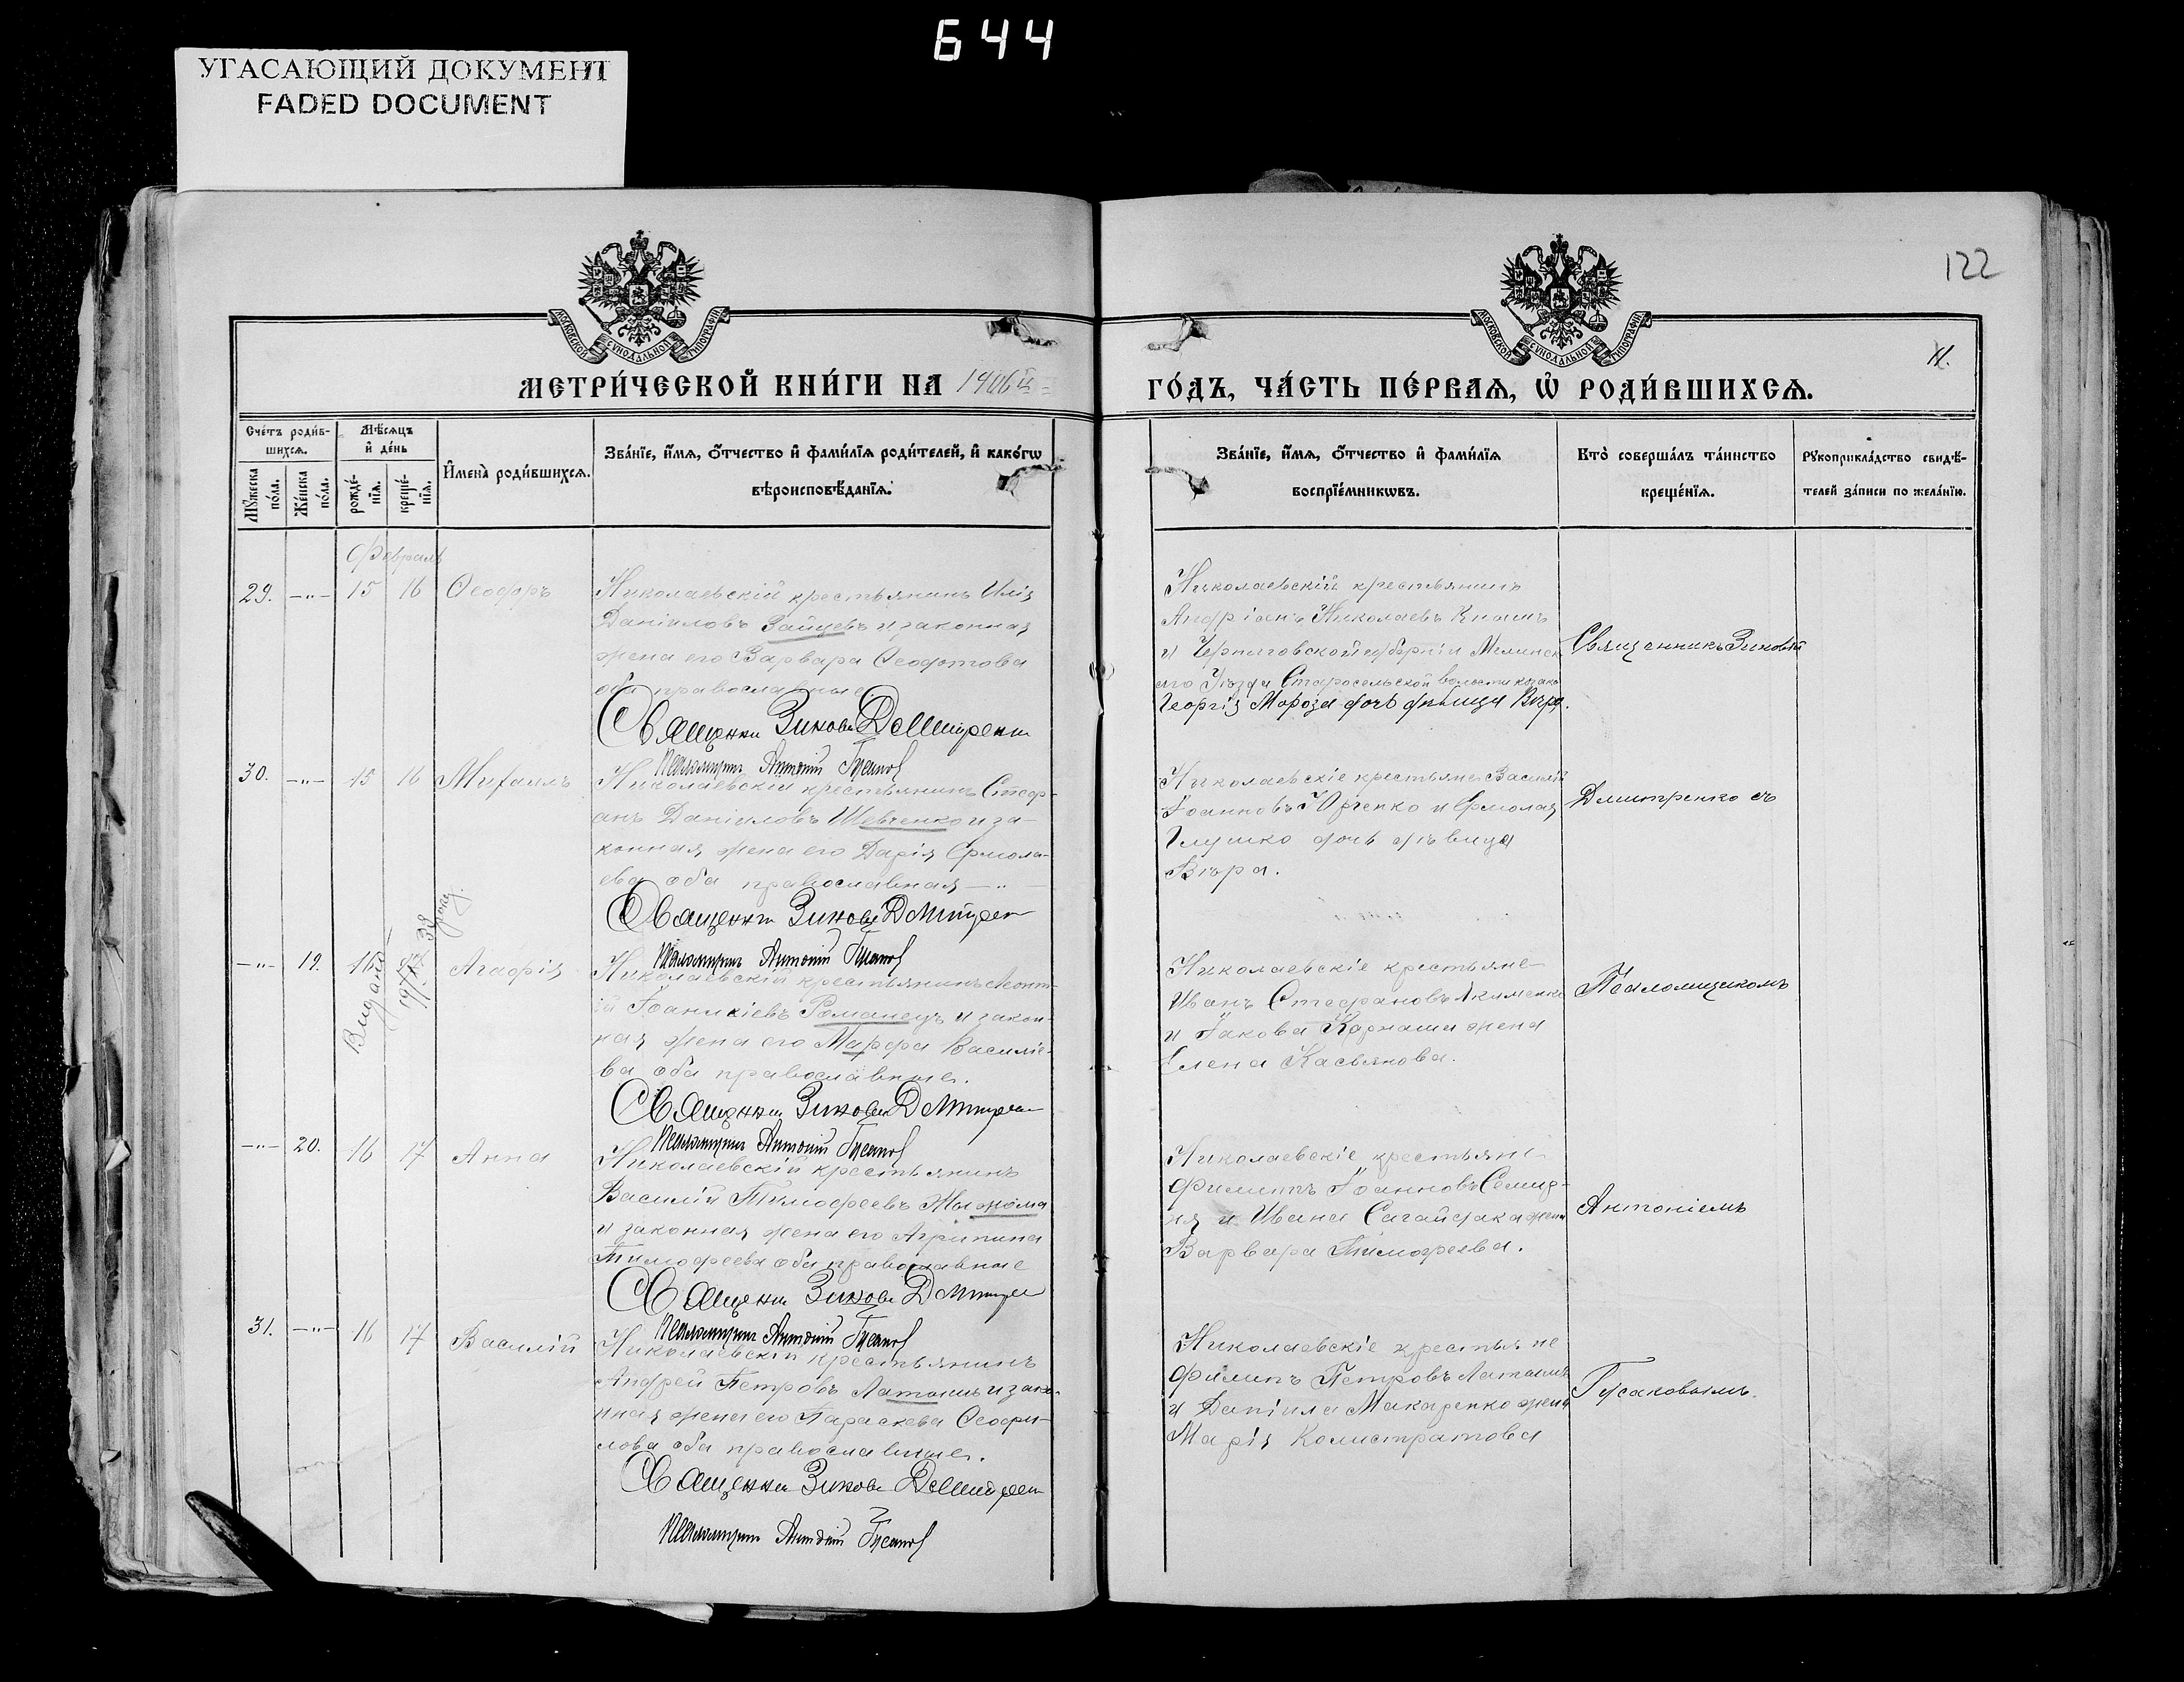 644
УГАСАЮЩИЙ ДОКУМЕНТ
FADED DOCUMENT
122
МОСКОВСКОЙ СѴНОДАЛЬНОЙ ТИПОГРАФІИ
МОСКОВСКОЙ СѴНОДАЛЬНОЙ ТИПОГРАФІИ
МЕТРИ́ЧЕСКОЙ КНИ́ГИ НА 1906й
ГО́ДЪ, ЧА́СТЬ ПЕ́РВАѦ, Ѡ҆ РОДИ́ВШИХСѦ.
Сче́тъ роди́вшихсѧ.
Мꙋ́жеска по́ла.
Же́нска по́ла.
Мѣ́сѧцъ и҆ де́нь
рожде́нїѧ.
креще́нїѧ.
И҆мена̀ роди́вшихсѧ.
Зва́нїе, и҆́мѧ, ѻ҆́тчество и҆ фами́лїѧ роди́телей, и҆ како́гѡ
вѣроисповѣ́данїѧ.
Зва́нїе, и҆́мѧ, ѻ҆́тчество и҆ фами́лїѧ
воспрїе́мникѡвъ.
Кто̀ соверша́лъ та́инство
креще́нїѧ.
Рꙋкоприкла́дство свидѣ́-
телей за́писи по жела́нїю.
Февраль
29. —"— 15 16 Ѳеодоръ
Николаевскій крестьянинъ Илія
Даніиловъ Зайцевъ и законная
жена его Варвара Ѳеодотова
оба православные.
Священникъ Зиновій Дмитренко
Псаломщикъ Антоній Гусаков
Николаевскій крестьянинъ
Андріанъ Николаевъ
и Черниговской губерніи
его Уѣзда Старосельской волости козака
Георгія Мороза дочь дѣвица Вѣра.
Священникъ Зиновій
30. —"— 15 16 Михаилъ
Николаевскій крестьянинъ Стеф-
анъ Даніиловъ Шевченко и за-
конная жена его Дарія Ермола-
ева оба православная —"—
Священникъ Зиновій Дмитрен
Псаломщикъ Антоній Гусаков
Николаевскіе крестьяне Василій
Іоанновъ Юрченко и Ермолая
Глушко дочь дѣвица
Вѣра.
Дмитренко съ
—"— 19. 16 17 Агафія
Николаевскій крестьянинъ Леонт-
ій Іоаникіевъ Романецъ и закон-
ная жена его Марфа Василіе-
ва оба православные.
Священникъ Зиновій Дмитрен
Псаломщикъ Антоній Гусаков
Николаевскіе крестьяне
Иванъ Стефановъ Якименко
и Іакова Карнаши жена
Елена Касьянова.
Псаломщикомъ
—"— 20. 16 17 Анна
Николаевскій крестьянинъ
Василій Тимофеевъ
и законная жена его Агрипина
Тимофеева оба православные
Священникъ Зиновій Дмитрен
Псаломщикъ Антоній Гусаков
Николаевскіе крестьяне
Филиппъ Іоанновъ
и Ивана Сагайдака жена
Варвара Тимофеева.
Антоніемъ
31. —"— 16 17 Василій
Николаевскій крестьянинъ
Андрей Петровъ Латышъ и зако-
нная жена его Параскева Ѳеофи-
лова оба православные.
Священникъ Зиновій Дмитрен
Псаломщикъ Антоній Гусаков
Николаевскіе крестьяне
Филипъ Петровъ Латышъ
и Даніила Макаренко жена
Марія Калистратова
Гусаковымъ.